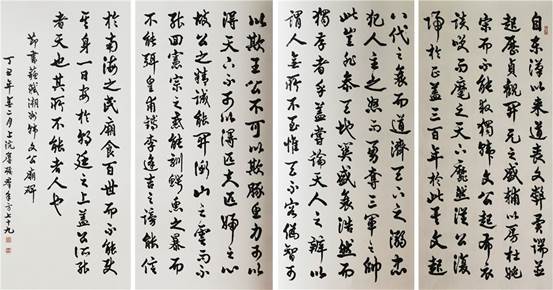 自東漢以来道喪文弊異端並
起歷貞觀開元之盛輔以房杜姚
宋而不能救獨韓文公起布衣
談笑而麾之天下靡然從公復
歸於正蓋三百年於此矣文起
八代之衰而道濟天下之溺忠
犯人主之怒而勇奪三軍之帥
此豈非參天地關盛衰浩然而
獨存者乎蓋嘗論天人之辨以
謂人無所不至惟天不容偽智可
以欺王公不可以欺豚魚力可以
得天下不可以得匹夫匹婦之心
故公之精誠能開衡山之雲而不
能回憲宗之惑能馴鱷魚之暴而
不能弭皇甫鎛李逢吉之謗能信
於南海之民廟食百世而不能使
其身一日安於朝廷之上蓋公之所能
者天也其所不能者人也
節書蘇軾潮州韓文公廟碑
丁丑年二月上浣年方七十九